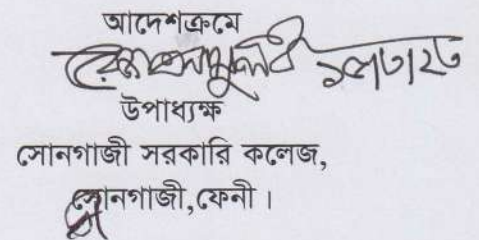 আদেশক্রমে
উপাধ্যক্ষ
সোনাগাজী সরকারি কলেজ,
সোনাগাজী,ফেনী।